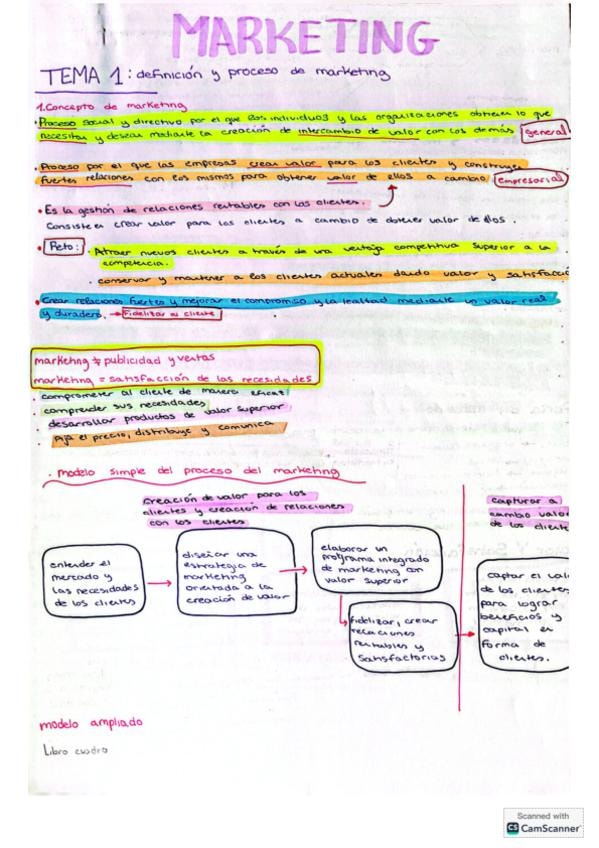 MARKETING
TEMA 1: definición y proceso de marketing
1. Concepto de marketing
• Proceso social y directivo por el que los individuos y las organizaciones obtienen lo que
necesitan y desean mediante la creación de intercambio de valor con los demás general
• Proceso por el que las empresas crean valor para los clientes y construyen
fuertes relaciones con los mismos para obtener valor de ellos a cambio empresarial
• Es la gestión de relaciones rentables con los clientes.
Consiste en crear valor para los clientes a cambio de obtener valor de ellos.
• Reto: • Atraer nuevos clientes a través de una ventaja competitiva superior a la
competencia.
• conservar y mantener a los clientes actuales dando valor y satisfacció
• Crear relaciones fuertes y mejorar el compromiso y la lealtad mediante un valor real
y duradero. → Fidelizar al cliente
marketing ≠ publicidad y ventas
marketing = satisfacción de las necesidades
• comprometer al cliente de manera eficaz
• comprender sus necesidades
• desarrollar productos de valor superior
• Fija el precio, distribuye y comunica
• modelo simple del proceso del marketing
creación de valor para los
clientes y creación de relaciones
con los clientes
capturar a
cambio valor
de los cliente
entender el
mercado y
las necesidades
de los clientes
diseñar una
estrategia de
marketing
orientada a la
creación de valor
elaborar un
programa integrado
de marketing con
valor superior
fidelizar, crear
relaciones
rentables y
satisfactorias
captar el valo
de los clientes
para lograr
beneficios y
capital en
forma de
clientes.
modelo ampliado
Libro cuadro
Scanned with
CS CamScanner